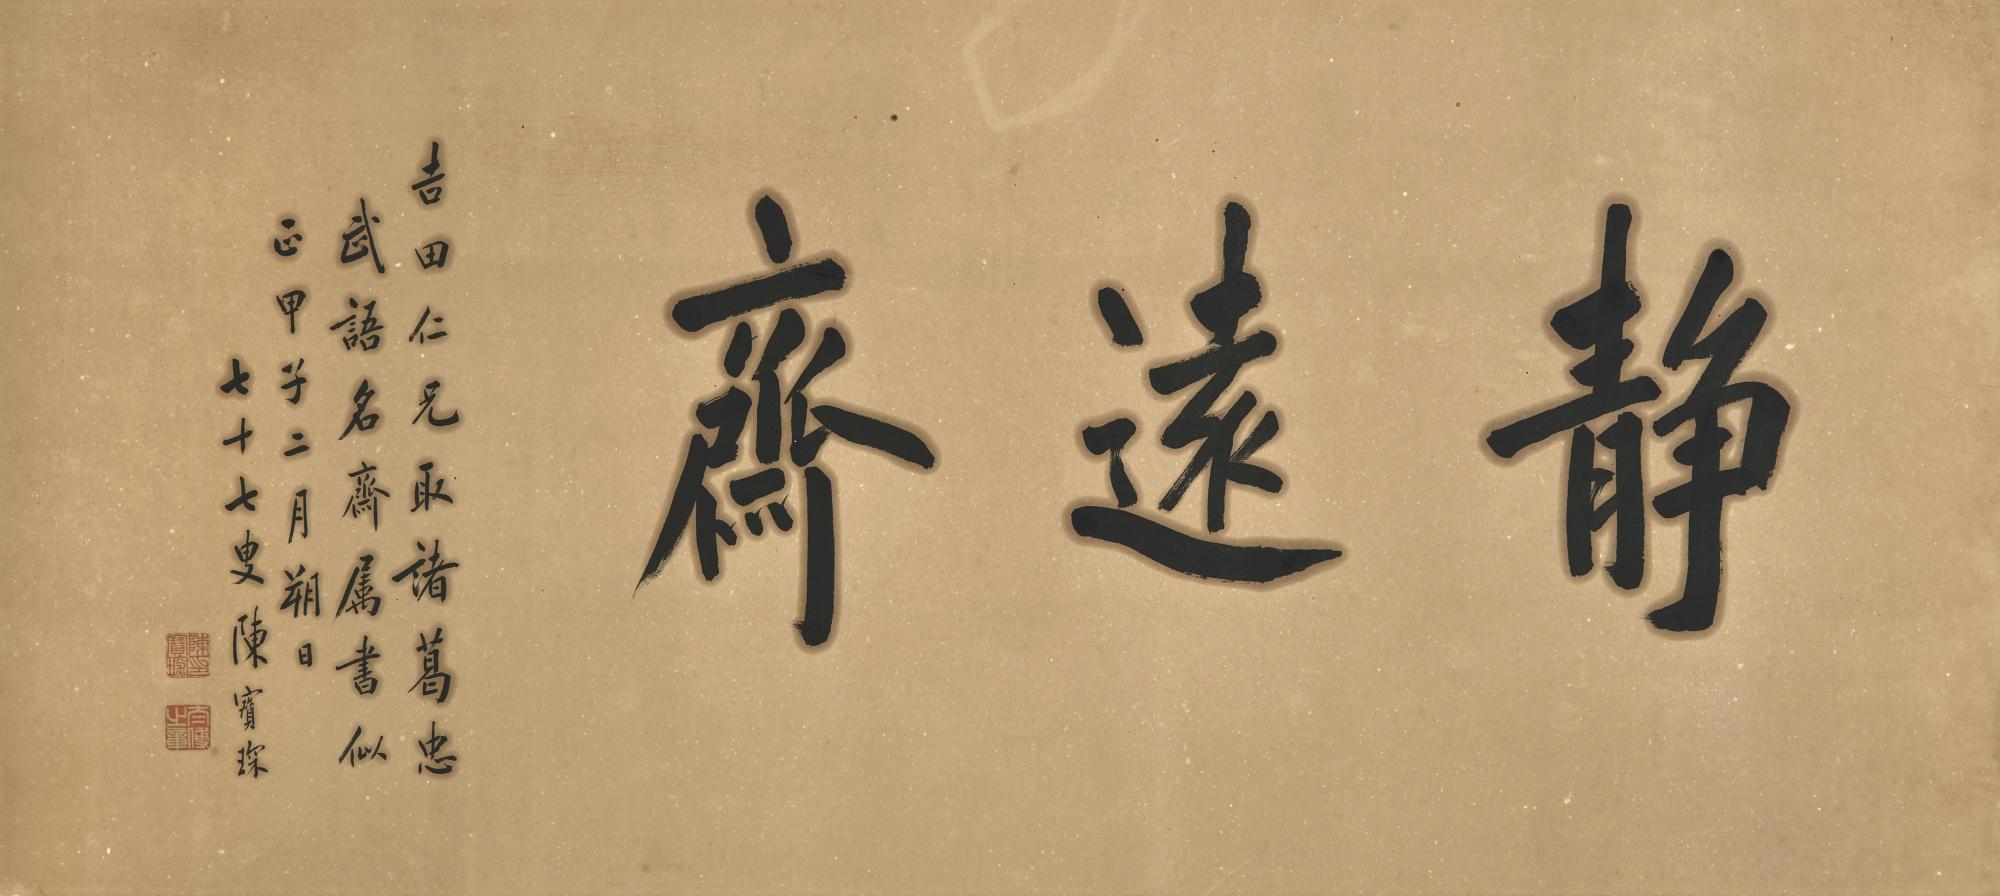 静遠齋
吉田仁兄取諸葛忠
武語名齋属書似
正甲子二月朔日
七十七叟陳寶琛
陳印寶琛
太傅之章